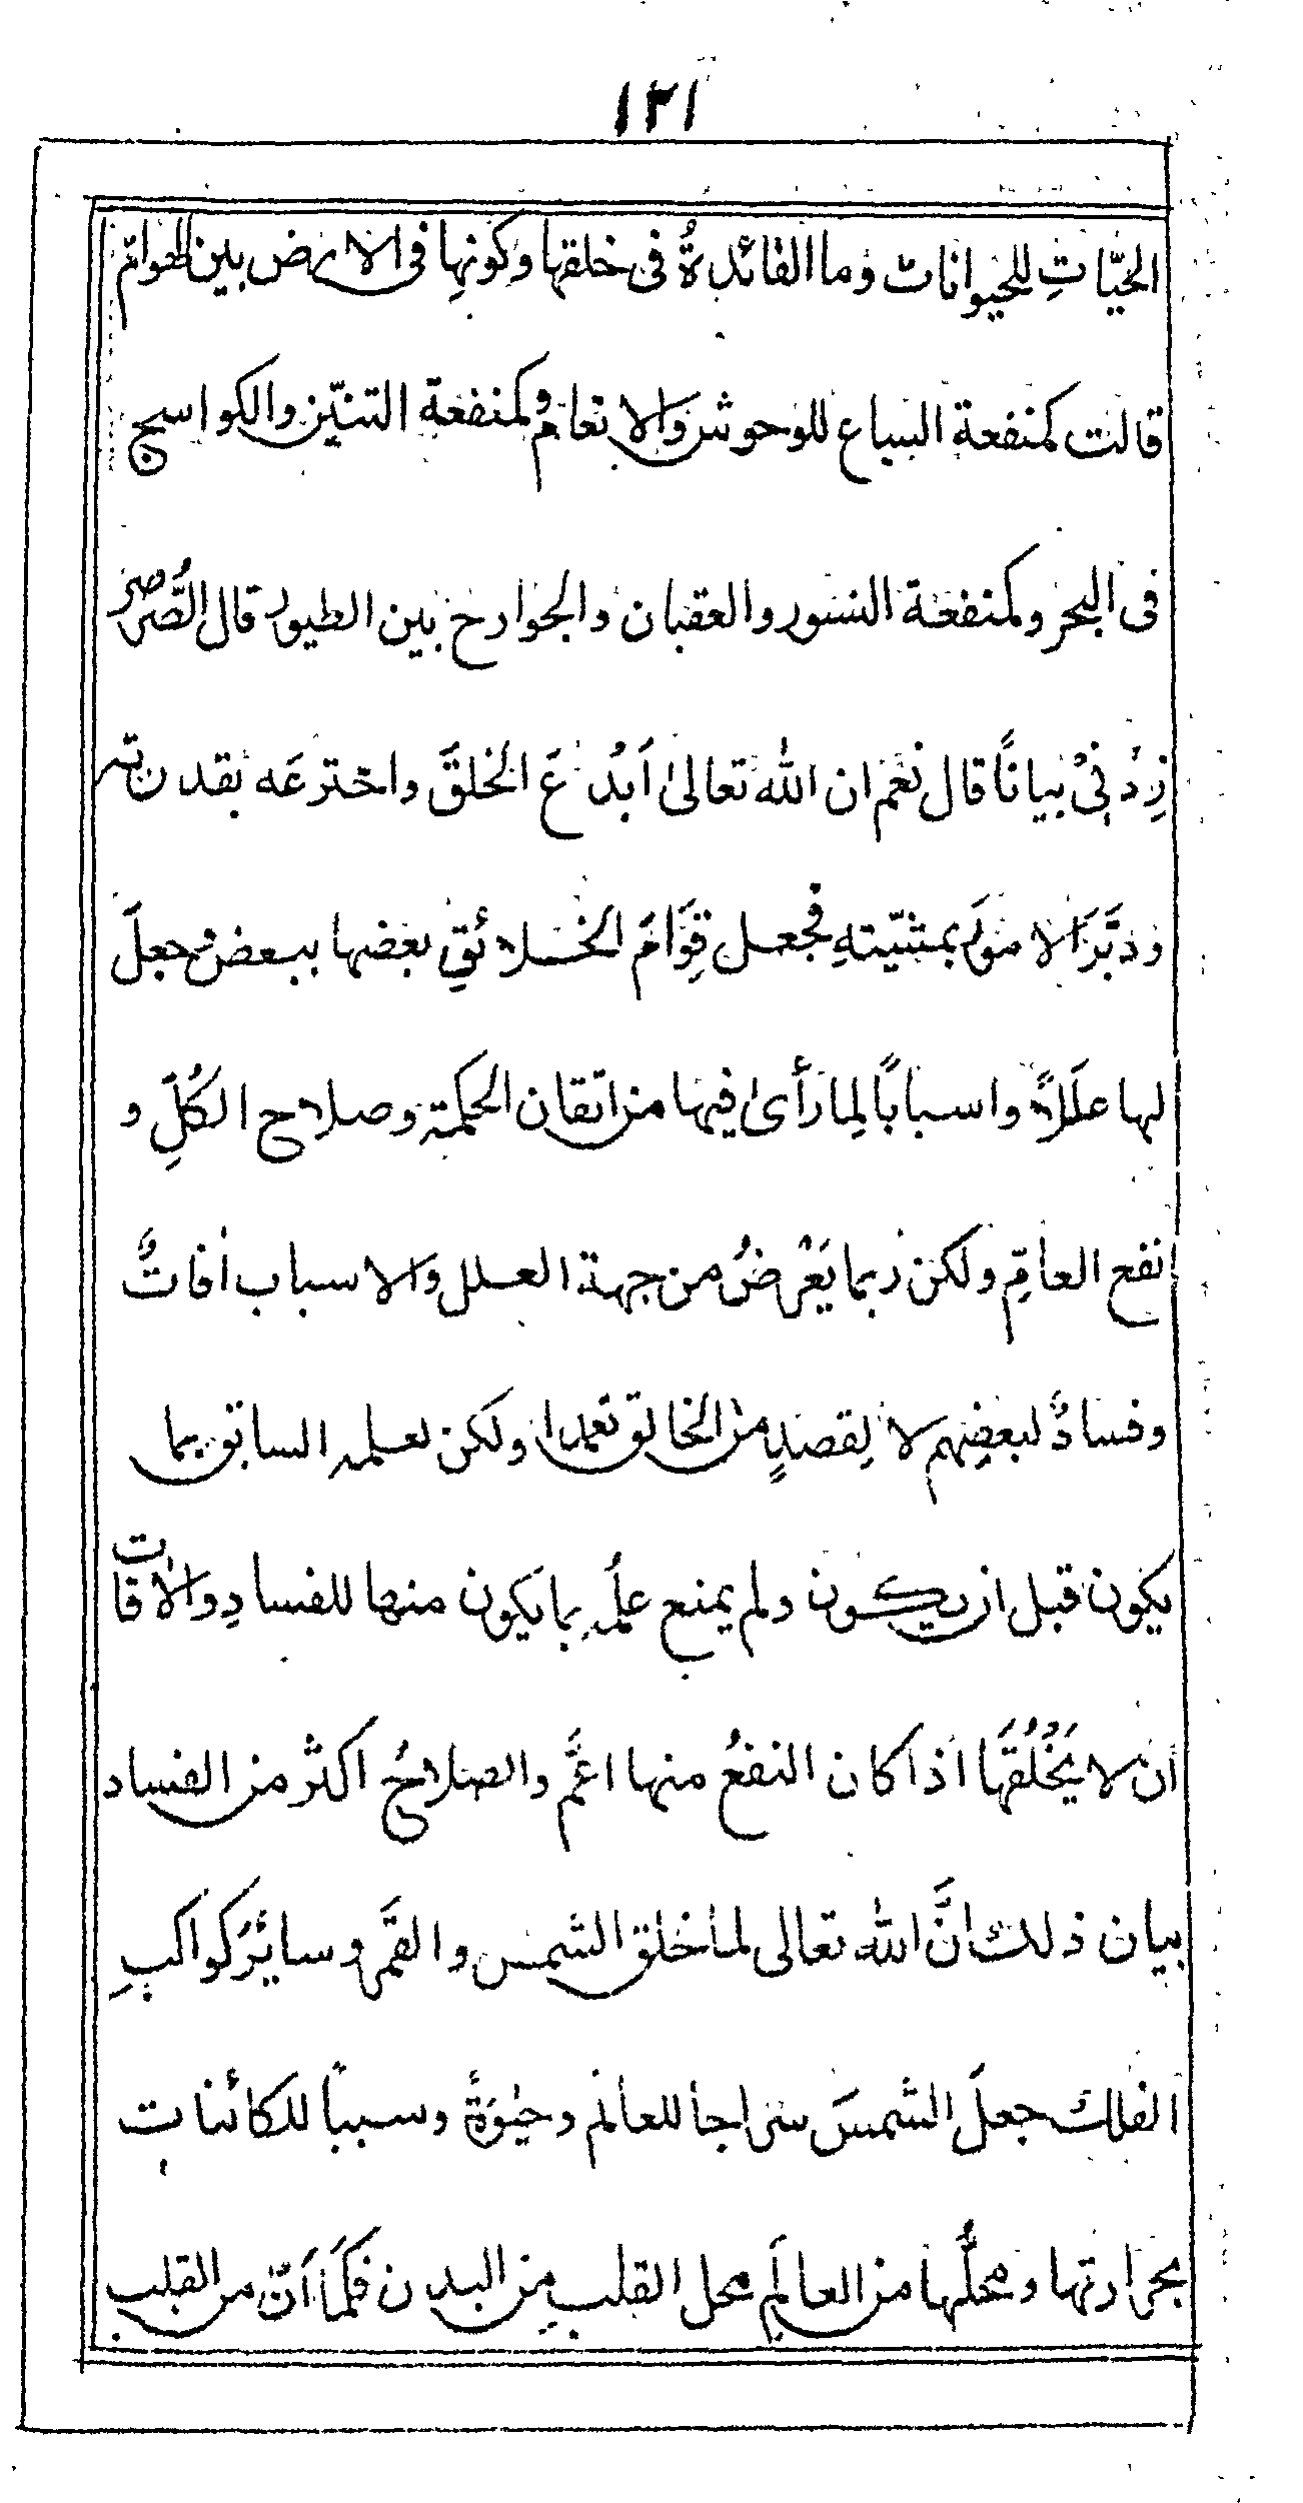 ١٣١
الحَيّاتِ للحيوانات وما الفائدةُ فى خلقها وكونِها فى الارض بين الهوامّ
قالت كمنفعة السباع للوحوش والانعام وكمنفعة التنّين والكواسج
فى البحر وكمنفعة النسور والعقبان والجوارح بين الطيور قال الصُّرصر
زِدْنِىْ بيانًا قال نعم ان الله تعالىٰ اَبْدَعَ الخلقَ واخترعَه بقدرته
ودَبَّرَ الامورَ بمشيّتهِ فجعل قِوَامَ الخلائقِ بعضها ببعض وجعلَ
لها عللاً واسبابًا لِما رَأىٰ فيها من اتقان الحكمة وصلاح الكُلِّ و
نفع العامِّ ولكن ربما يَعْرِضُ من جهة العلل والاسباب اٰفاتٌ
وفسادٌ لبعضِهم لا لِقصدٍ من الخالق تعمدا ولكن لعلمهِ السابق بما
يكون قبل ان يكون ولم يمنع علمُه بما يكون منها للفسادِ والاٰفات
ان لا يَخْلُقَها اذا كان النفعُ منها اعَمَّ والصلاحُ اكثر من الفساد
بيان ذلك انَّ الله تعالى لما خلق الشمس والقمَر وسائرَ كواكبِ
الفلك جعلَ الشَّمسَ سراجا للعالم وحيٰوةً وسببًا للكائنات
بحرارتها ومحلُّها من العالَمِ محل القلبِ من البدن فكمَا اَنّ من القلب